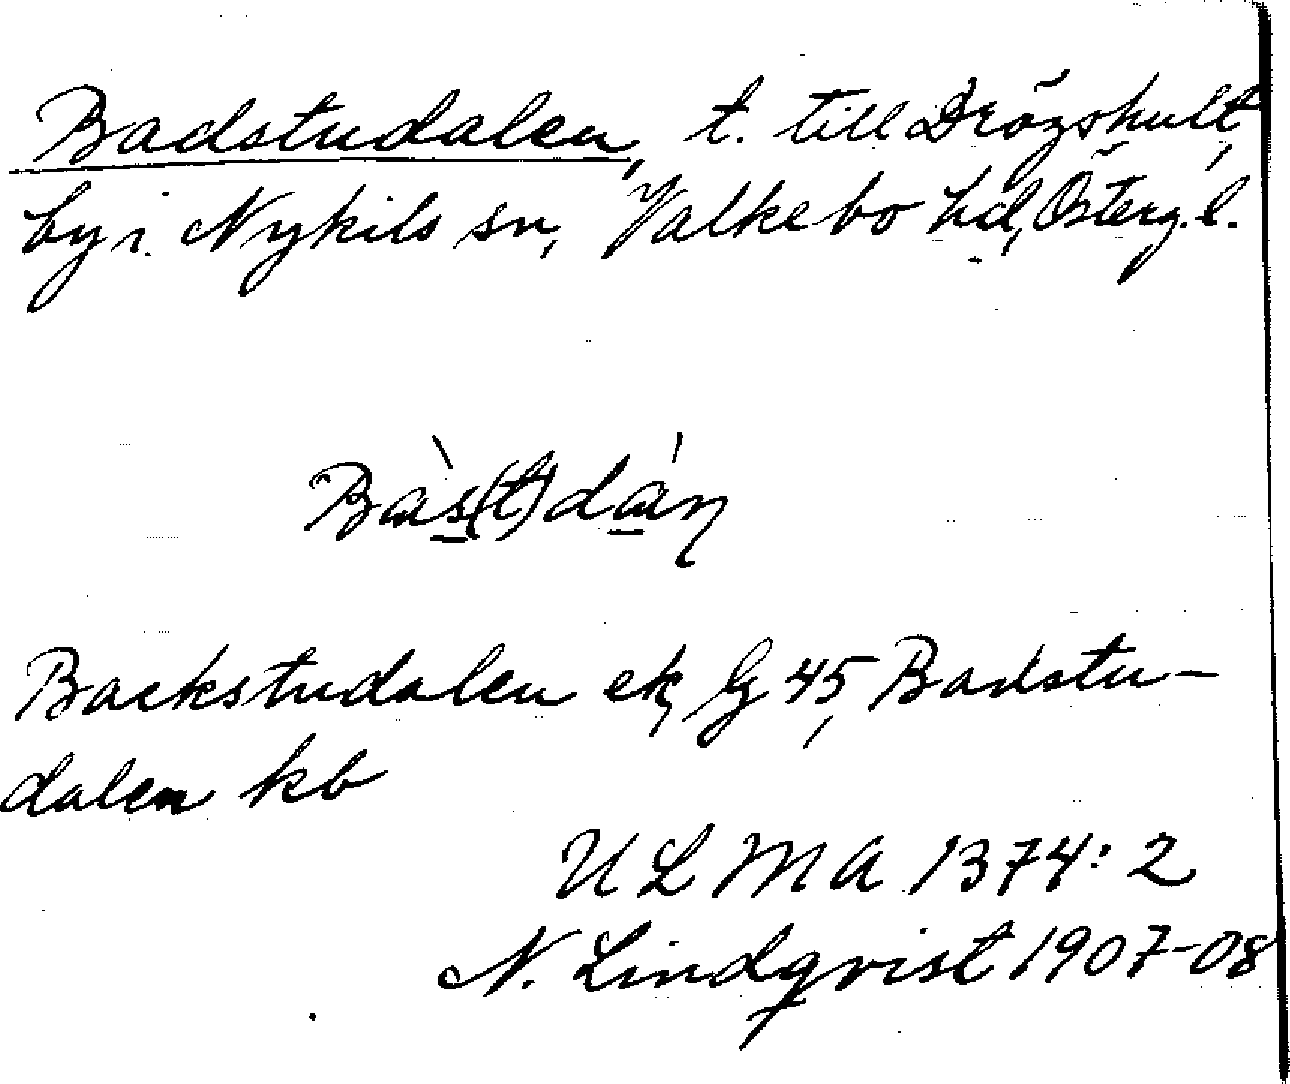 Badstudalen, t. till Drögshult,
by i Nykils sn, Valkebo hd, Österg.l.
Bàs(t)dán
Backstudalen ek, G 45, Badstu-
dalen kb
ULMA 1374:2
N. Lindqvist 1907-08